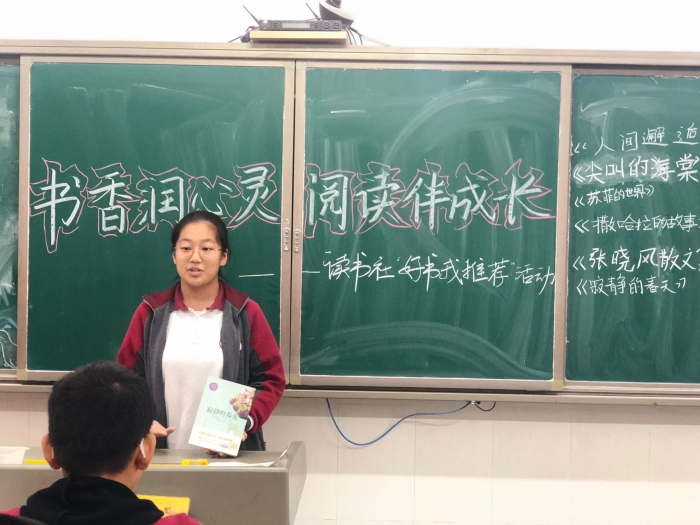 书香润心灵 阅读伴成长
——读书社“好书我推荐”活动
《人间邂逅
《尖叫的海棠
《苏菲的世界》
《撒哈拉的故事
《张晓风散文
《寂静的春天》
寂静的春天